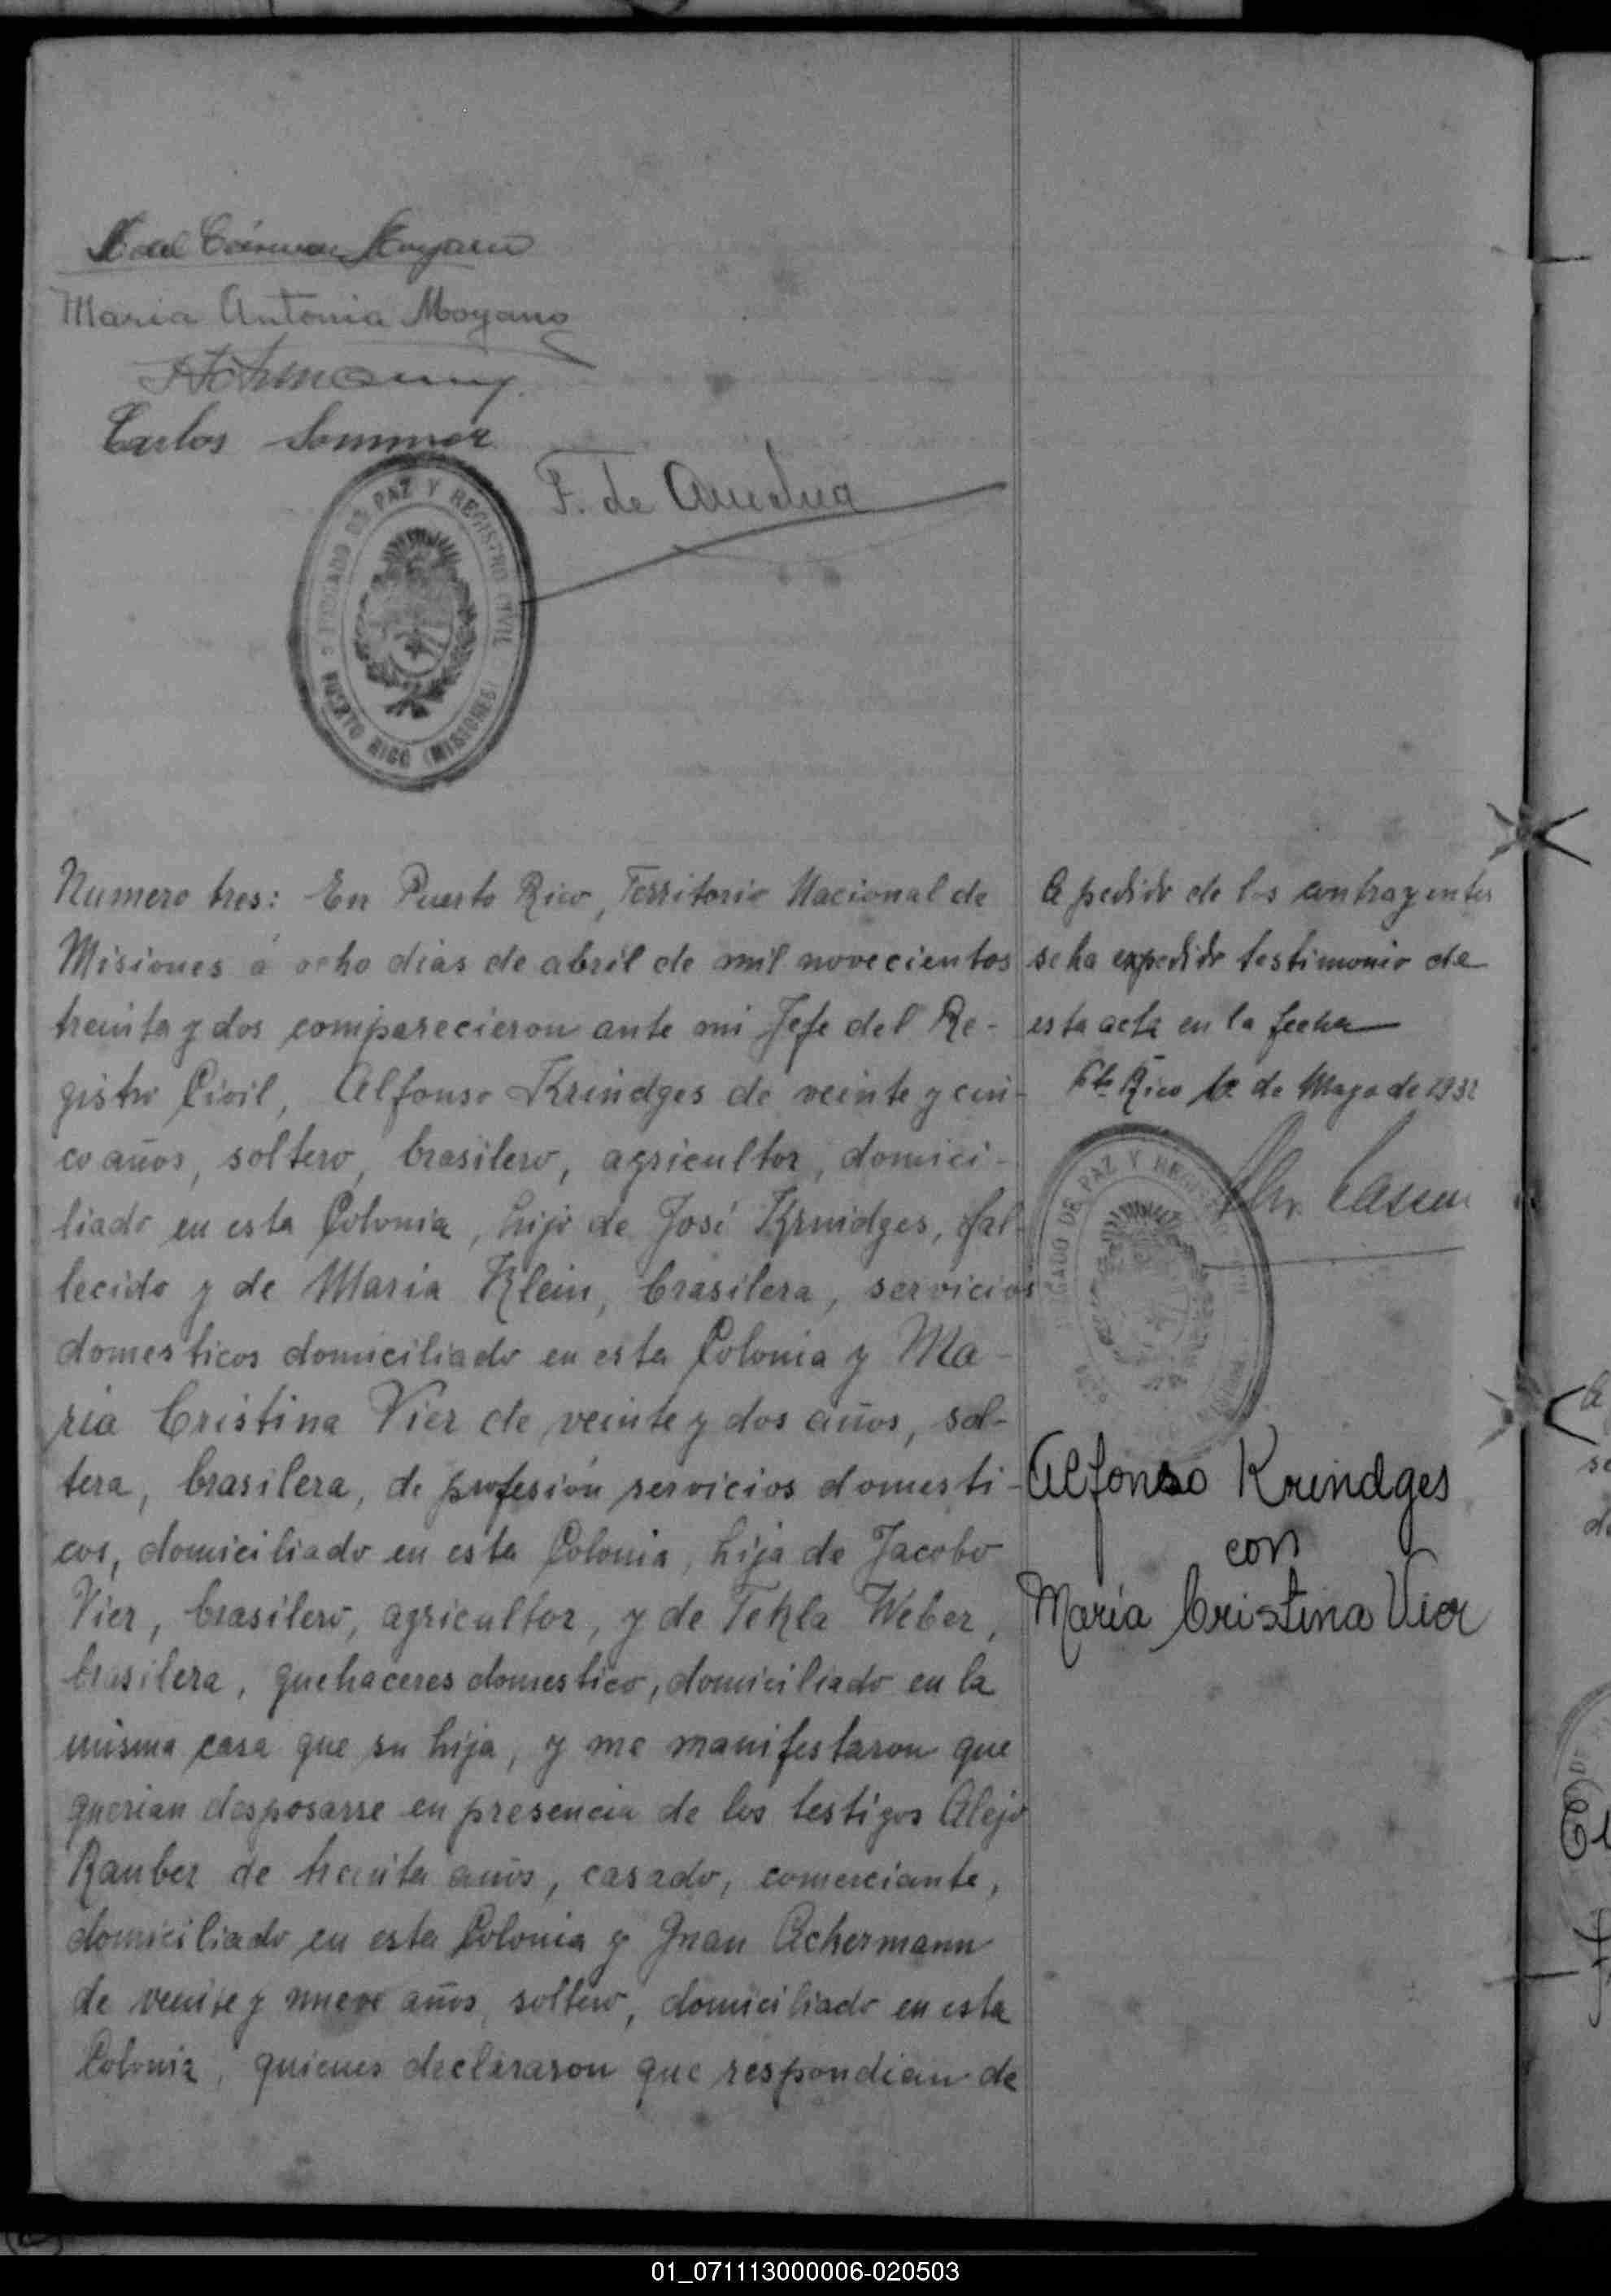 M del Cármen Moyano
Maria Antonia Moyano
Carlos Sommer
F. de
JUZGADO DE PAZ Y REGISTRO CIVIL
PUERTO RICO (MISIONES)
Numero tres: En Puerto Rico, Territorio Nacional de
Misiones á ocho dias de abril de mil novecientos
treinta y dos comparecieron ante mi Jefe del Re-
gistro Civil, Alfonso Krindges de veinte y cin-
co años, soltero, brasilero, agricultor, domici-
liado en esta Colonia, hijo de José Krindges, fal-
lecido y de Maria Klein, brasilera, servicios
domesticos domiciliado en esta Colonia y Ma-
ria Cristina Vier de veinte y dos años, sol-
tera, brasilera, de profesión servicios domesti-
cos, domiciliado en esta Colonia, hija de Jacobo
Vier, brasilero, agricultor, y de Tekla Weber,
brasilera, quehaceres domestico, domiciliado en la
misma casa que su hija, y me manifestaron que
querian desposarse en presencia de los testigos Alejo
Rauber de treinta años, casado, comerciante,
domiciliado en esta Colonia y Juan Achermann
de veinte y nueve años, soltero, domiciliado en esta
Colonia, quienes declararon que respondian de
A pedido de los contrayentes
se ha expedido testimonio de
esta acta en la fecha
Pto Rico 12 de Mayo de 1932
JUZGADO DE PAZ Y REGISTRO CIVIL
Alfonso Krindges
con
María Cristina Vier
01_071113000006-020503